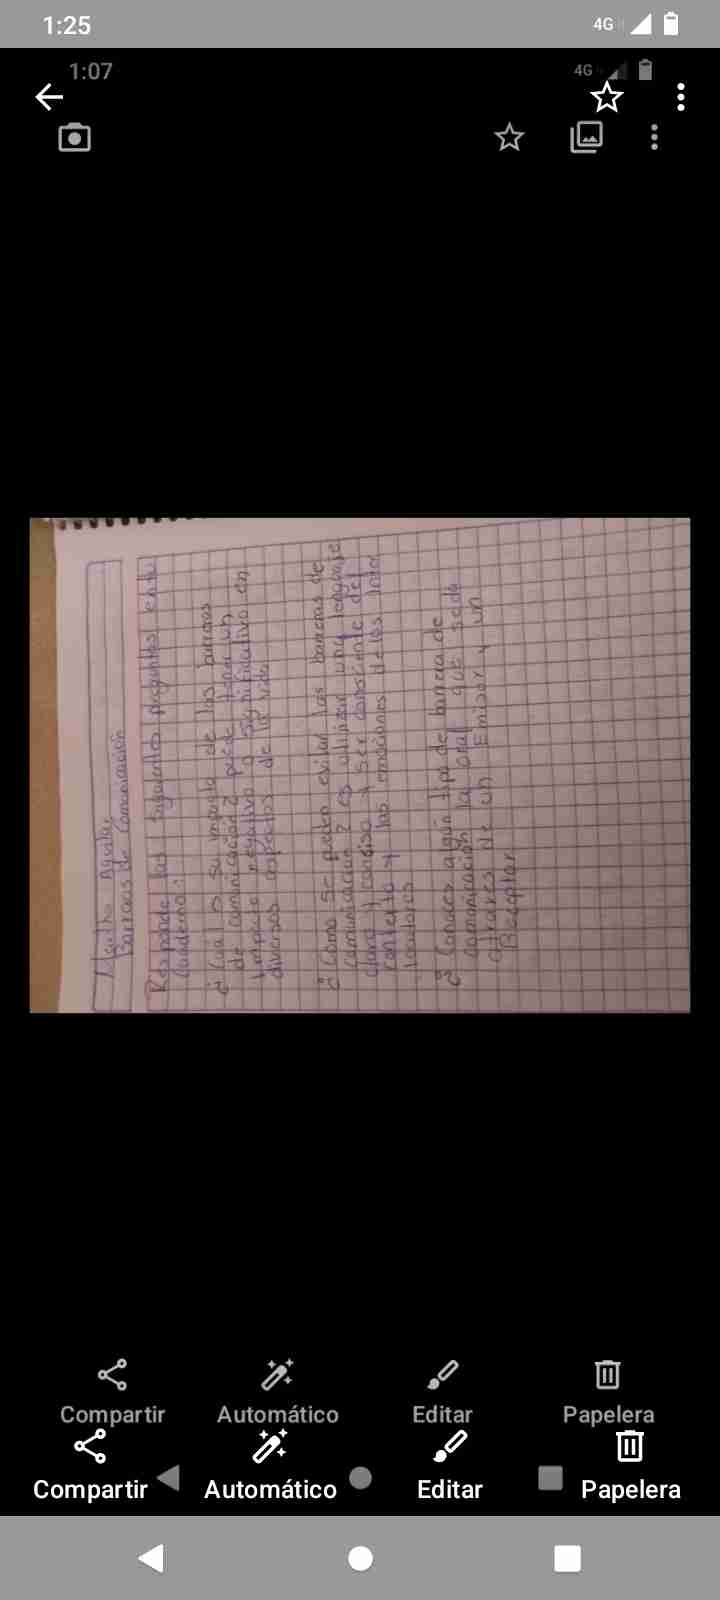 1:25
4G
1:07
4G
Aguilar
Barreras de Comunicación
Responde las siguientes preguntas en tu
cuaderno:
¿Cuál es su impacto de las barreras
de comunicación? puede tener un
impacto negativo y significativo en
diversos aspectos de la vida
¿Como se pueden evitar las barreras de
comunicación? es utilizar un lenguaje
claro y conciso y ser consciente del
contexto y las emociones de los inter
locutores
¿Conoces algún tipo de barrera de
comunicación la oral que se da
atraves de un Emisor y un
Receptor
Compartir
Automático
Editar
Papelera
Compartir
Automático
Editar
Papelera